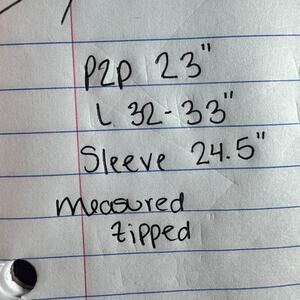 P2P 23"
L 32-33"
Sleeve 24.5"
measured
zipped